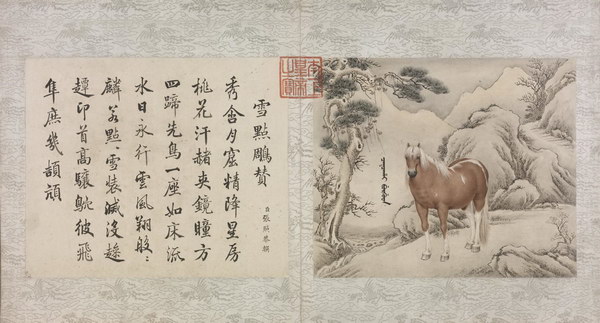 雪點鵰贊
臣張照恭
秀含月窟精降星房
桃花汗赭夾鏡瞳方
四蹄先鳥一座如床派
水日永行雲風翔般〻
麟若點雪裝滅沒
首高驤彼飛
隼庶幾頡頏